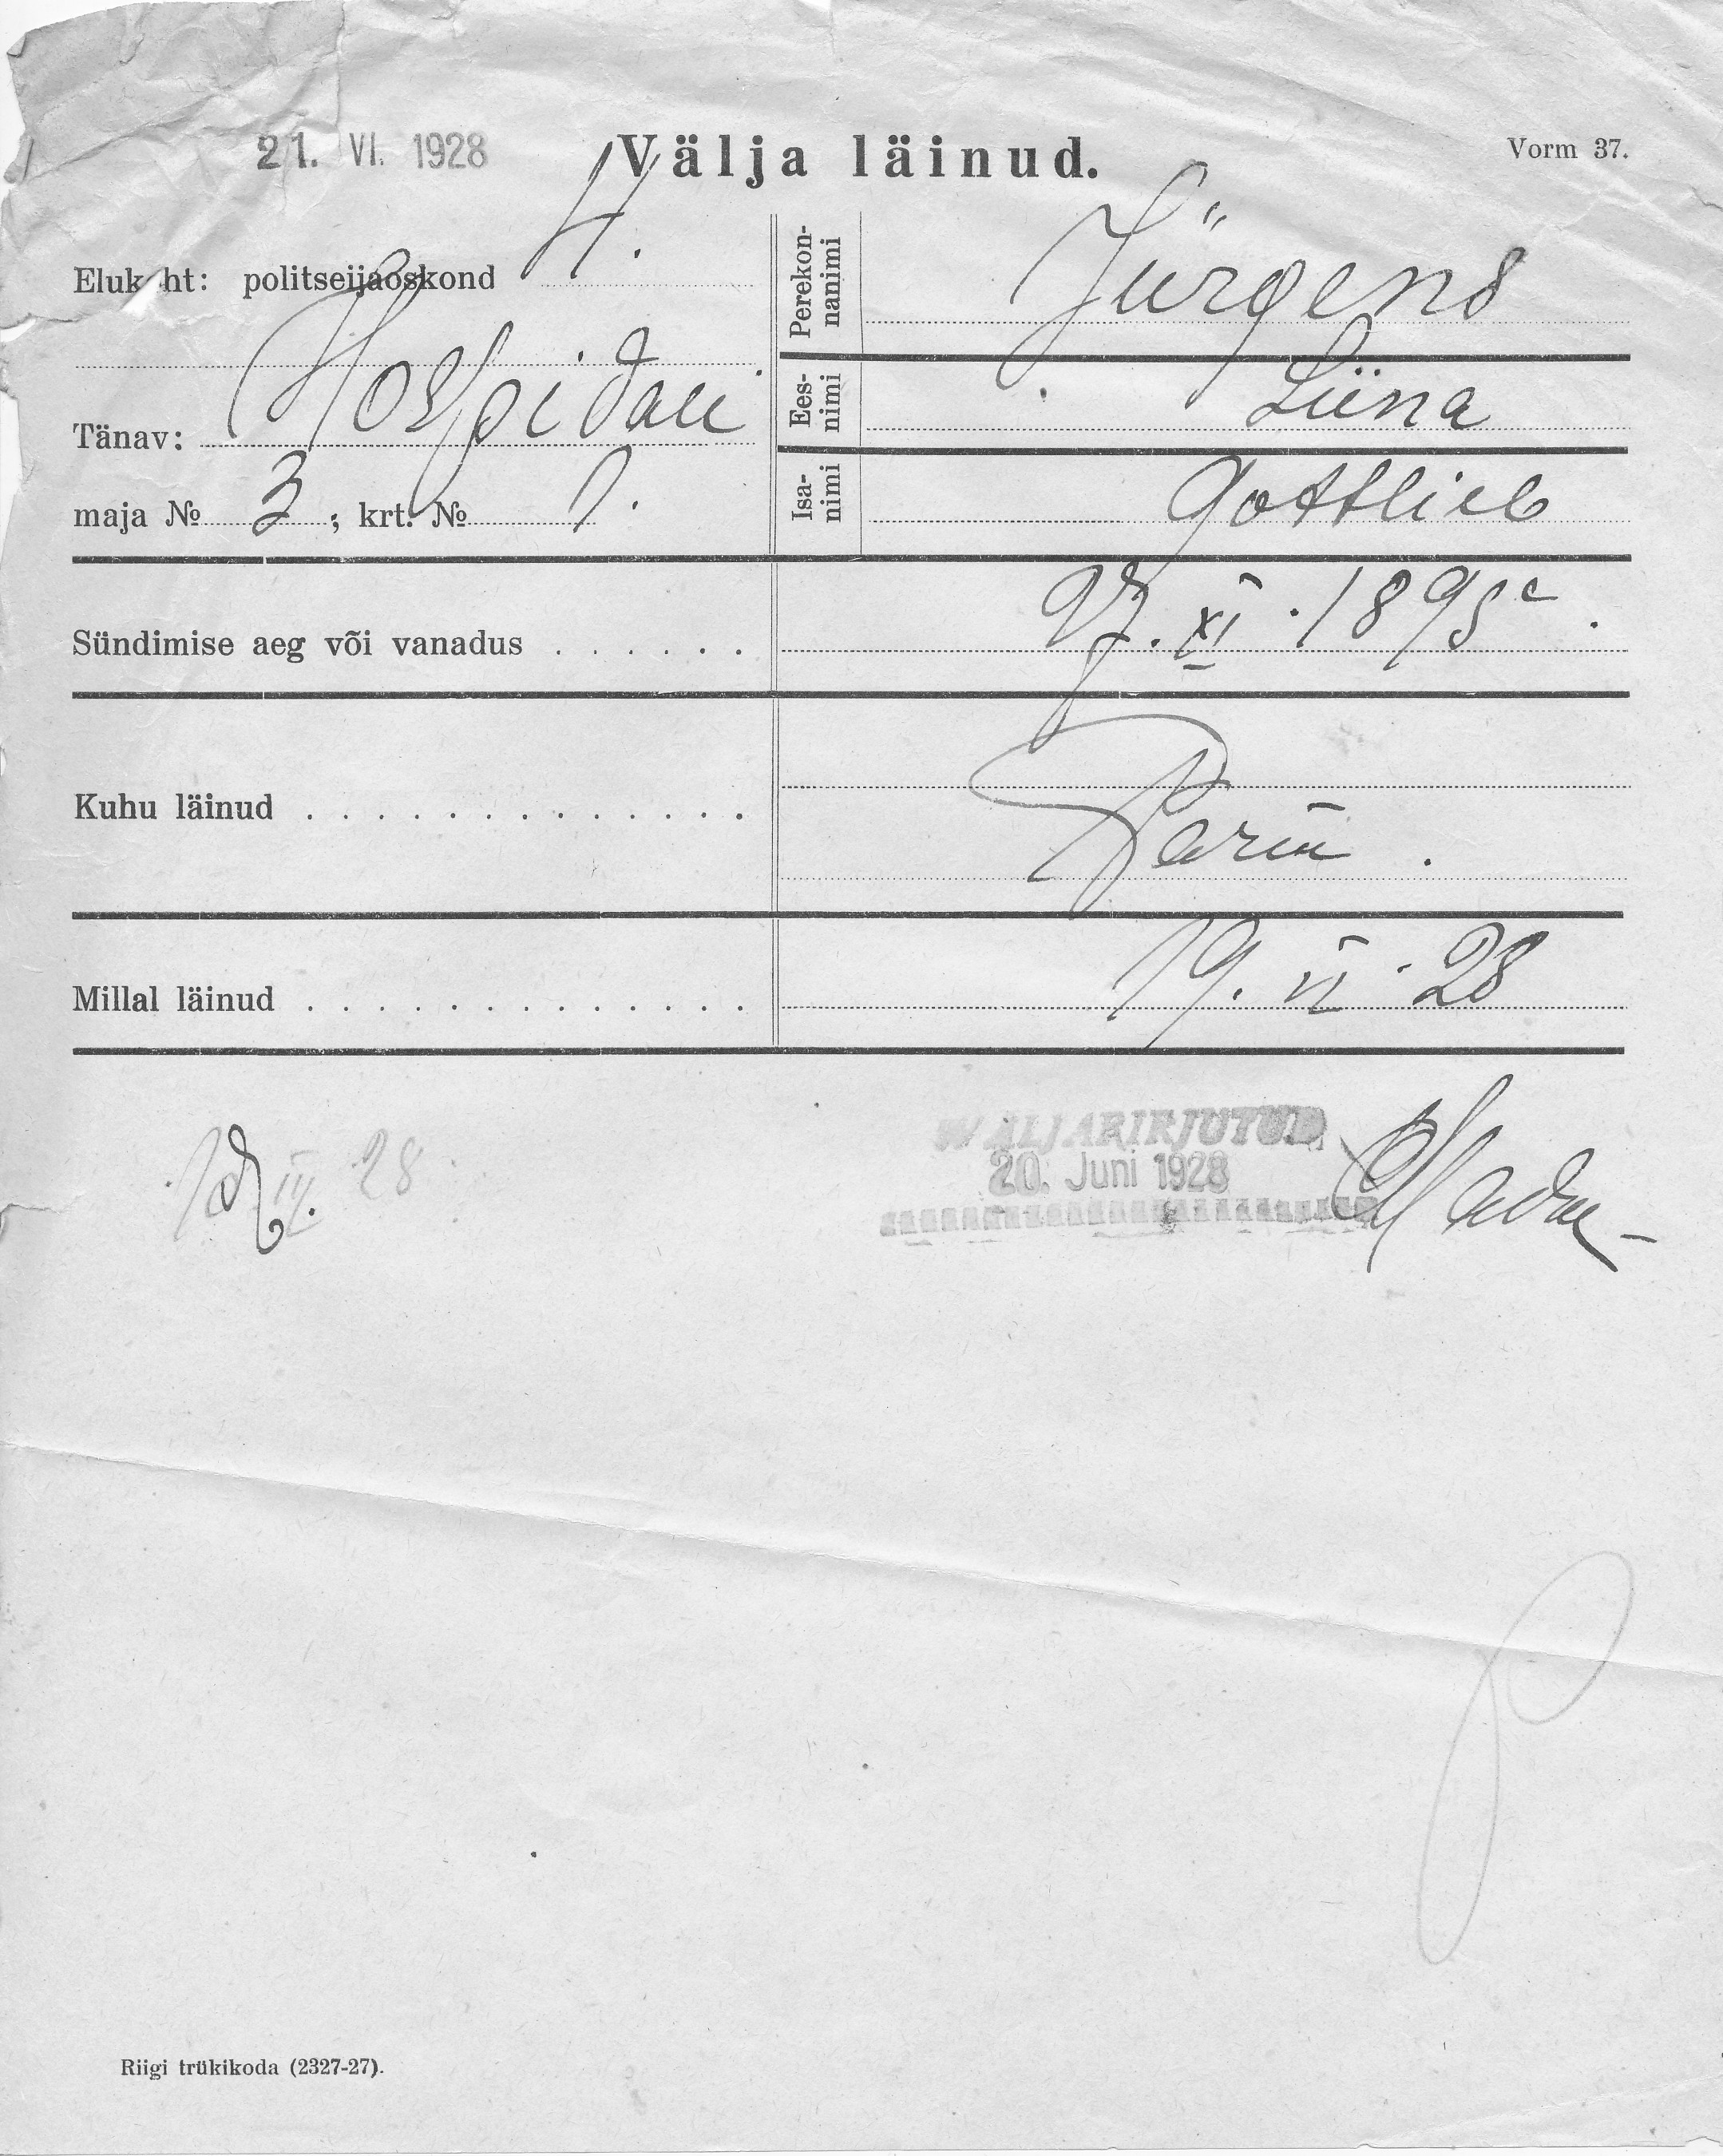 21. VI. 1928
Välja läinud.
Vorm 37.
Eluk ht: politseijaoskond 4.
Tänav: Hospidali
maja № 3 ; krt. № 1.
Perekon-
nanimi
Jürgens
Ees-
nimi
Liina
Isa-
nimi
Gottlieb
Sündimise aeg või vanadus . . . . . .
27. XI . 1895 .
Kuhu läinud . . . . . . . . . . . . .
Millal läinud . . . . . . . . . . . . .
19. VI. 28
III. 28
WÄLJAKIRJUTUD
20. Juni 1928
Riigi trükikoda (2327-27).